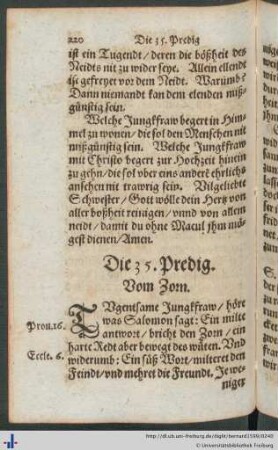 220 Die 35. Predig
ist ein Tugendt / deren die bößheit des
Neidts nit zu wider seye. Allein ellendt
ist gefreyet vor dem Neidt. Warumb?
Dann niemandt kan dem elenden miß-
günstig sein.
Welche Jungkfraw begert in Him-
mel zu wonen / die sol den Menschen nit
mißgünstig sein. Welche Jungkfraw
mit Christo begert zur Hochzeit hinein
zu gehn / die sol vber eins anders ehrlichs
ansehen nit trawrig sein. Vilgeliebte
Schwester / Gott wölle dein Hertz von
aller boßheit reinigen / vnnd von allem
neidt / damit du ohne Macul jhm mö-
gest dienen / Amen.
Die 35. Predig.
Vom Zorn.
TVgentsame Jungkfraw / hört
Prou. 16. was Salomon sagt: Ein milte
antwort / bricht den Zorn / ein
harte Redt aber bewegt des wüten. Vnd
Eccle. 6. widerumb: Ein süß Wort / milteret den
Feindt / vnd mehret die Freundt. Je we-
niger
http://dl.ub.uni-freiburg.de/diglit/bernard1598/0240
© Universitätsbibliothek Freiburg